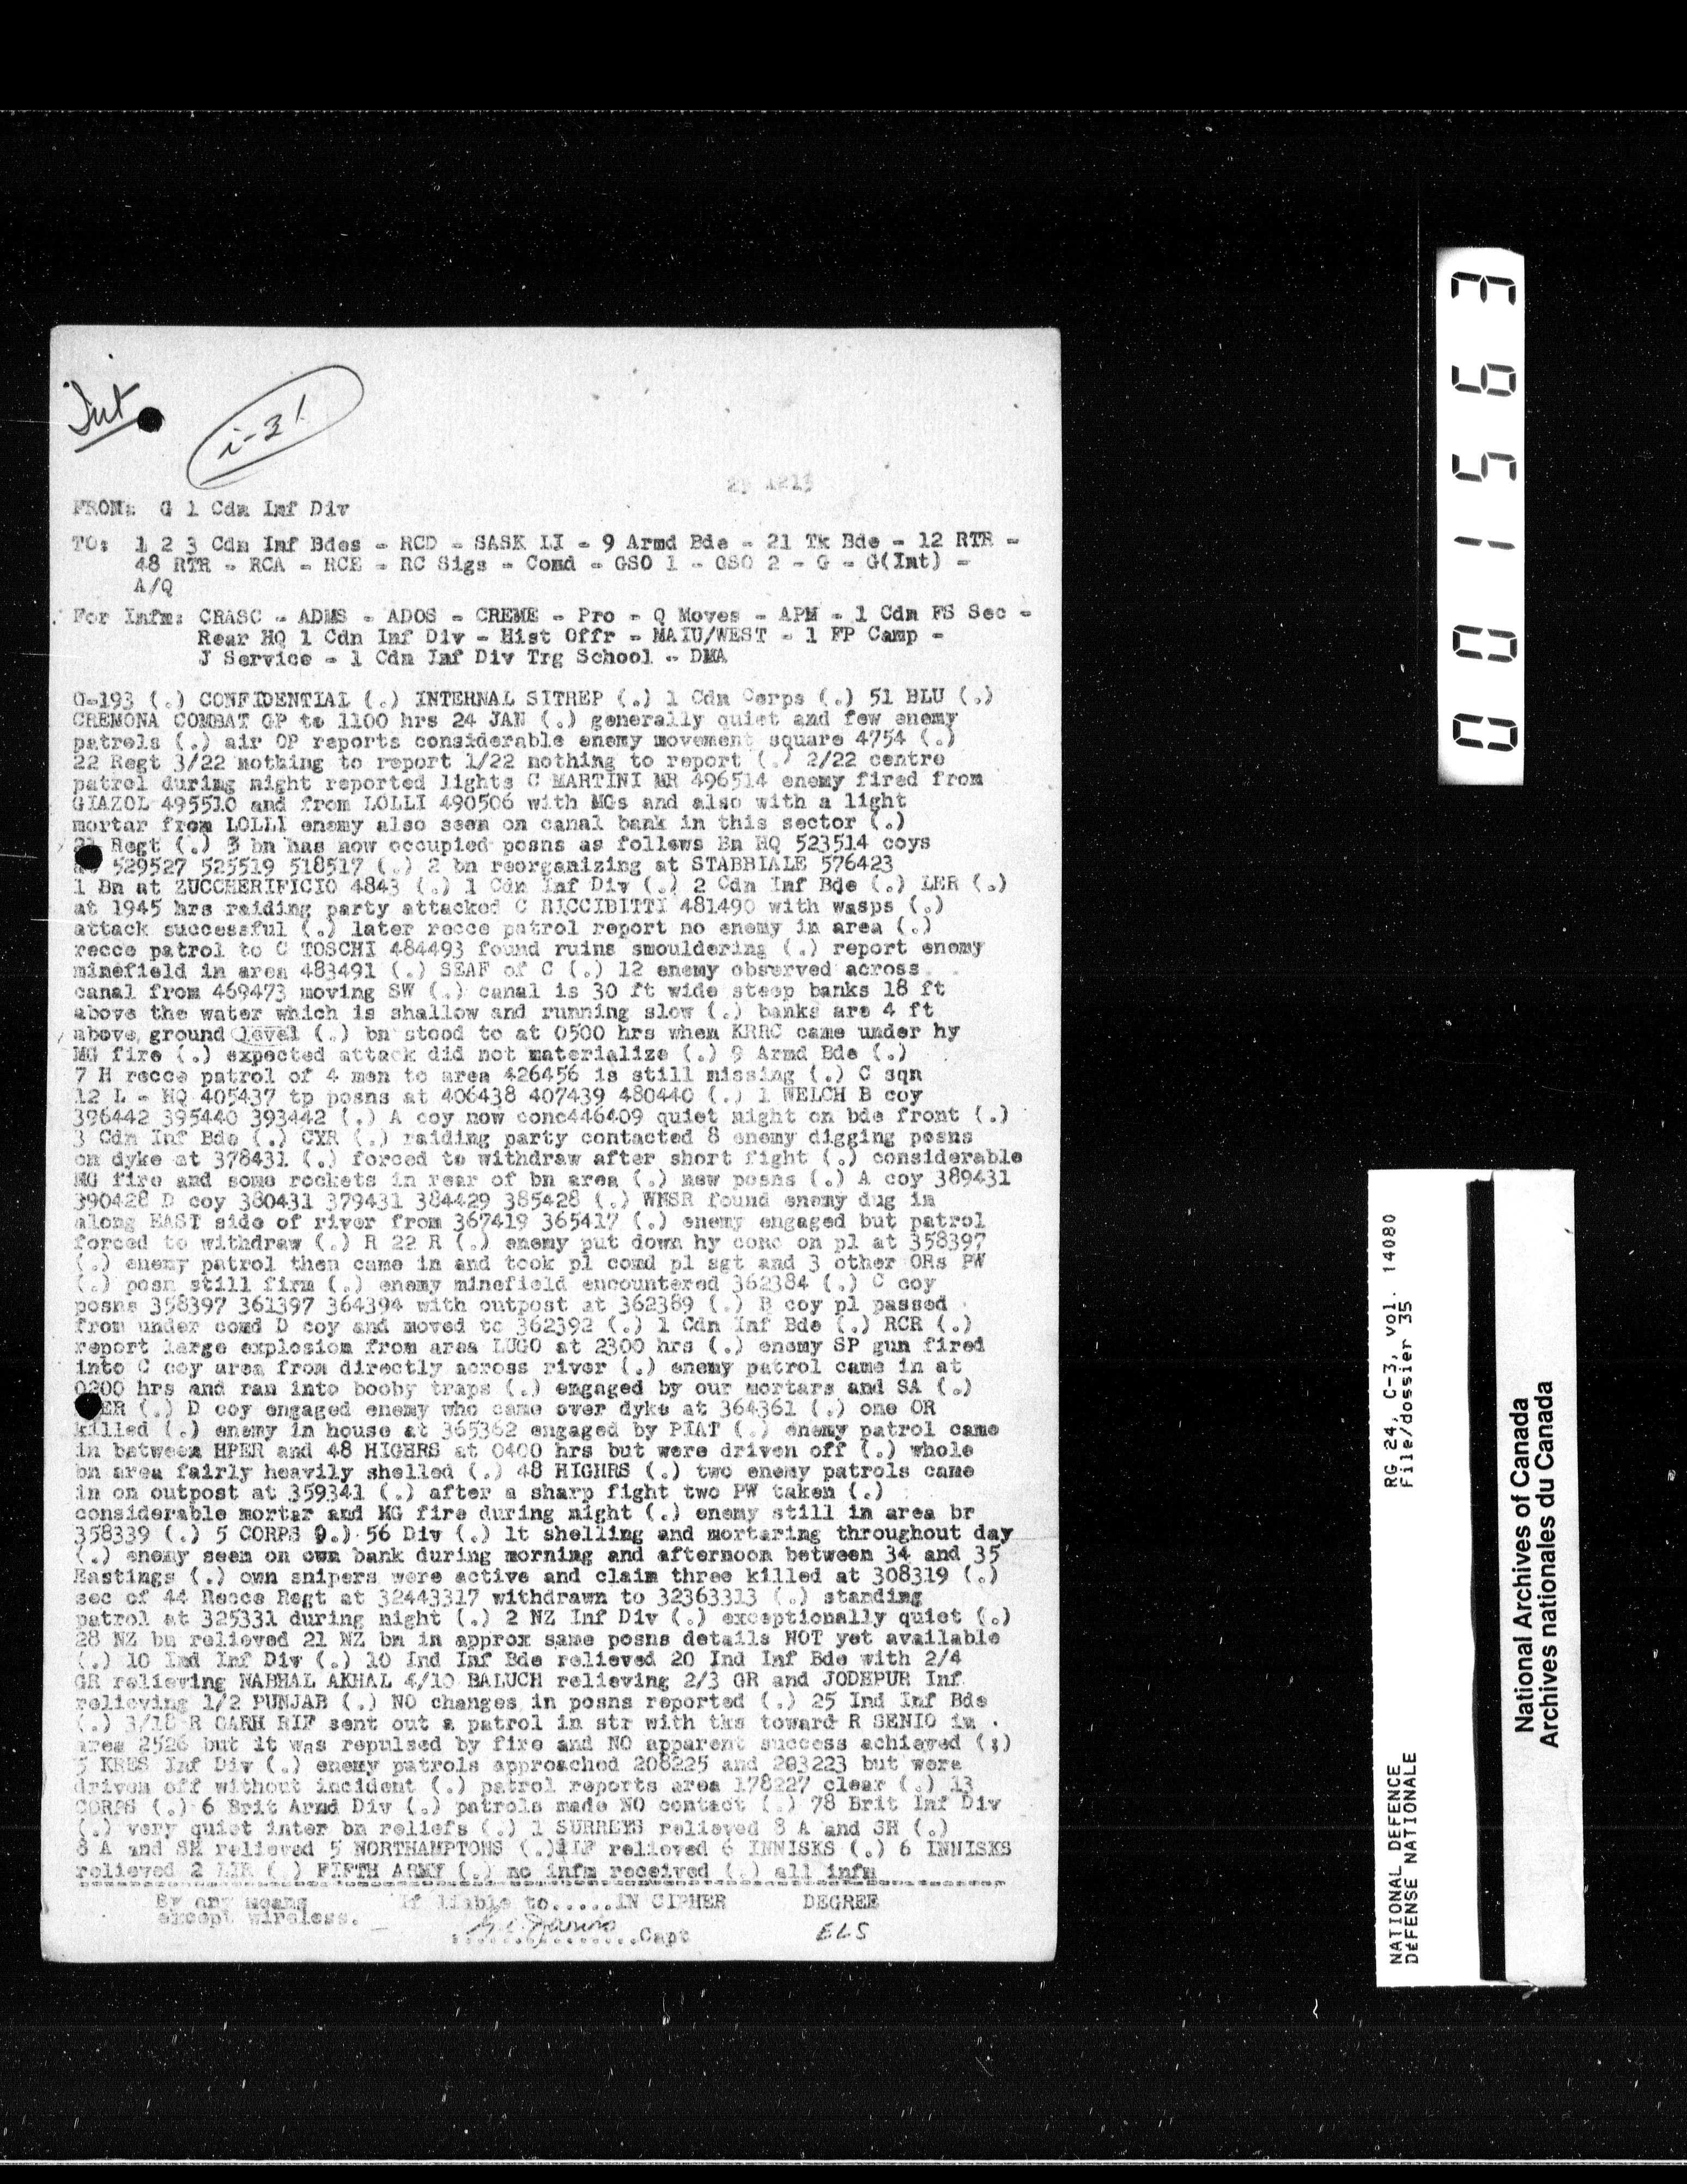 Int
i-31
1213
FROM: G 1 Cdn Inf Div
TO: 1 2 3 Cdn Inf Bdes - RCD - SASK LI - 9 Armd Bde - 21 Tk Bde - 12 RTR -
48 RTR - RCA - RCE - RC Sigs - Comd - GSO 1 - GSO 2 - G - G(Int) -
A/Q
For Infm: CRASC - ADMS - ADOS - CREME - Pro - Q Moves - APM - 1 Cdn FS Sec -
Rear HQ 1 Cdn Inf Div - Hist Offr - MAIU/WEST - 1 FP Camp -
J Service - 1 Cdn Inf Div Trg School - DMA
O-193 (.) CONFIDENTIAL (.) INTERNAL SITREP (.) 1 Cdn Corps (.) 51 BLU (.)
CREMONA COMBAT GP to 1100 hrs 24 JAN (.) generally quiet and few enemy
patrols (.) air OP reports considerable enemy movement square 4754 (.)
22 Regt 3/22 nothing to report 1/22 nothing to report (.) 2/22 centre
patrol during night reported lights C MARTINI MR 496514 enemy fired from
GIAZOL 495510 and from LOLLI 490506 with MGs and also with a light
mortar from LOLLI enemy also seen on canal bank in this sector (.)
Regt (.) 3 bn has now occupied posns as follows Bn HQ 523514 coys
529527 525519 518517 (.) 2 bn reorganizing at STABBIALE 576423
1 Bn at ZUCCHERIFICIO 4843 (.) 1 Cdn Inf Div (.) 2 Cdn Inf Bde (.) LER (.)
at 1945 hrs raiding party attacked C RICCIBITTI 481490 with wasps (.)
attack successful (.) later recce patrol report no enemy in area (.)
recce patrol to C TOSCHI 484493 found ruins smouldering (.) report enemy
minefield in area 483491 (.) SEAF of C (.) 12 enemy observed across
canal from 469473 moving SW (.) canal is 30 ft wide steep banks 18 ft
above the water which is shallow and running slow (.) banks are 4 ft
above ground level (.) bn stood to at 0500 hrs when KRRC came under hy
MG fire (.) expected attack did not materialize (.) 9 Armd Bde (.)
7 H recce patrol of 4 men to area 426456 is still missing (.) C sqn
12 L - HQ 405437 tp posns at 406438 407439 480440 (.) 1 WELCH B coy
396442 395440 393442 (.) A coy now conc446409 quiet night on bde front (.)
3 Cdn Inf Bde (.) CYR (.) raiding party contacted 8 enemy digging posns
on dyke at 378431 (.) forced to withdraw after short fight (.) considerable
MG fire and some rockets in rear of bn area (.) new posns (.) A coy 389431
390428 D coy 380431 379431 384429 385428 (.) WNSR found enemy dug in
along EAST side of river from 367419 365417 (.) enemy engaged but patrol
forced to withdraw (.) R 22 R (.) enemy put down hy conc on pl at 358397
(.) enemy patrol then came in and took pl comd pl sgt and 3 other ORs PW
(.) posn still firm (.) enemy minefield encountered 362384 (.) C coy
posns 358397 361397 364394 with outpost at 362389 (.) B coy pl passed
from under comd D coy and moved to 362392 (.) 1 Cdn Inf Bde (.) RCR (.)
report large explosion from area LUGO at 2300 hrs (.) enemy SP gun fired
into C coy area from directly across river (.) enemy patrol came in at
0200 hrs and ran into booby traps (.) engaged by our mortars and SA (.)
ER (.) D coy engaged enemy who came over dyke at 364361 (.) one OR
killed (.) enemy in house at 365362 engaged by PIAT (.) enemy patrol came
in between HPER and 48 HIGHRS at 0400 hrs but were driven off (.) whole
bn area fairly heavily shelled (.) 48 HIGHRS (.) two enemy patrols came
in on outpost at 359341 (.) after a sharp fight two PW taken (.)
considerable mortar and MG fire during night (.) enemy still in area br
358339 (.) 5 CORPS 9.) 56 Div (.) lt shelling and mortaring throughout day
(.) enemy seen on own bank during morning and afternoon between 34 and 35
Eastings (.) own snipers were active and claim three killed at 308319 (.)
sec of 44 Recce Regt at 32443317 withdrawn to 32363313 (.) standing
patrol at 325331 during night (.) 2 NZ Inf Div (.) exceptionally quiet (.)
28 NZ bn relieved 21 NZ bn in approx same posns details NOT yet available
(.) 10 Ind Inf Div (.) 10 Ind Inf Bde relieved 20 Ind Inf Bde with 2/4
GR relieving NABHAL AKHAL 4/10 BALUCH relieving 2/3 GR and JODEPUR Inf
relieving 1/2 PUNJAB (.) NO changes in posns reported (.) 25 Ind Inf Bde
(.) 3/18 R GARH RIF sent out a patrol in str with tks toward R SENIO in
area 2526 but it was repulsed by fire and NO apparent success achieved (;)
5 KRES Inf Div (.) enemy patrols approached 208225 and 203223 but were
driven off without incident (.) patrol reports area 178227 clear (.) 13
CORPS (.) 6 Brit Armd Div (.) patrols made NO contact (.) 78 Brit Inf Div
(.) very quiet inter bn reliefs (.) 1 SURREYS relieved 8 A and SH (.)
8 A and SH relieved 5 NORTHAMPTONS (.) relieved 6 INNISKS (.) 6 INNISKS
relieved 2 LIR (.) FIFTH ARMY (.) no infm received (.) all infm
By any means If liable to.....IN CIPHER DEGREE
except wireless.
Capt ELS
001563
RG 24, C-3, vol. 14080
File/dossier 35
NATIONAL DEFENCE
DÉFENSE NATIONALE
National Archives of Canada
Archives nationales du Canada